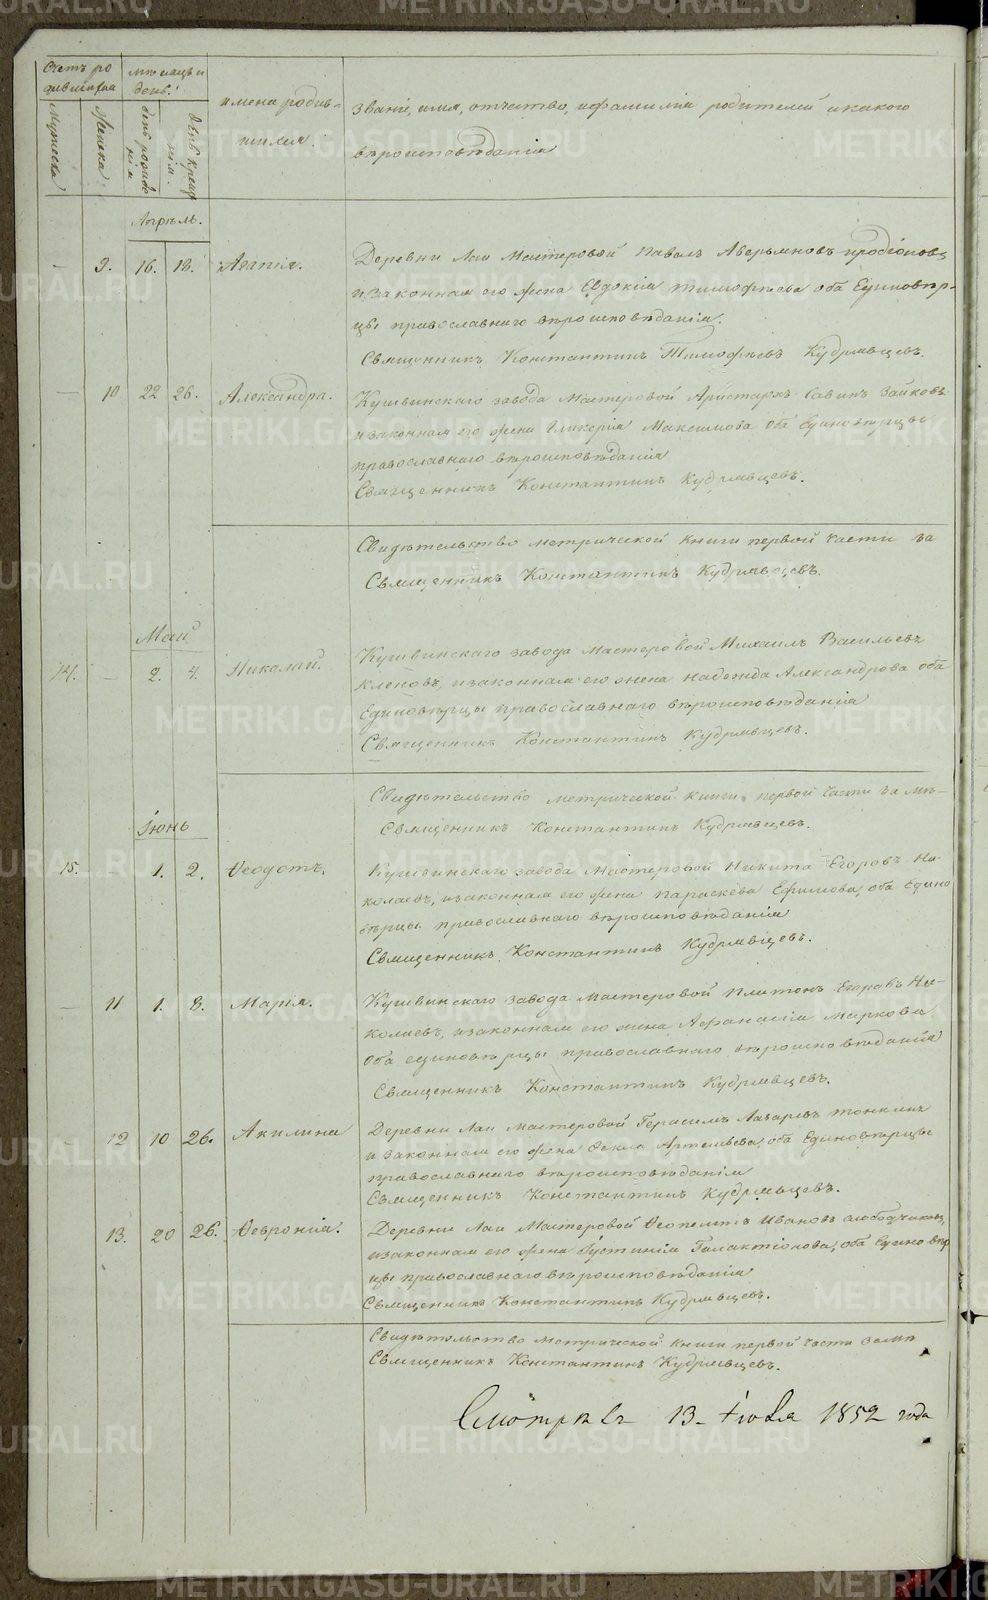 Счетъ ро
дившихся
мѣсяцъ и
день.
мужеска
женска
день рожде
нія
день крещ
нія.
имена родив-
шихся.
Званіе, имя, отчество, и фамилія родителей и какого
вѣроисповѣданія
Апрѣль.
— 9. 16. 18. Агапія. Деревни Лаи Мастеровой Павелъ Аверьяновъ
и законная его жена Евдокія Тимофѣева оба Единовѣр-
цы православнаго вѣроисповѣданія.
Священникъ Константинъ Тимофѣевъ Кудрявцевъ.
— 10 22 26. Александра. Кушвинскаго завода Мастеровой Аристархъ Савинъ Зайковъ
и законная его жена Гликерія Максимова оба Единовѣрцы
православнаго вѣроисповѣданія
Священникъ Константинъ Кудрявцевъ.
Свидѣтельство метрической книги первой части за
Священникъ Константинъ Кудрявцевъ.
Май
14. — 2. 4. Николай. Кушвинскаго завода мастеровой Михаилъ Васильевъ
Кленовъ, и законная его жена Надежда Александрова оба
Единовѣрцы православнаго вѣроисповѣданія
Священникъ Константинъ Кудрявцевъ.
Свидѣтельство метрической книги первой части за мѣ-
Священникъ Константинъ Кудрявцевъ.
Іюнь
15. 1. 2. Ѳеодотъ. Кушвинскаго завода Мастеровой Никита Егоровъ Ни-
колаевъ, и законная его жена Параскева Ефимова, оба Едино
вѣрцы православнаго вѣроисповѣданія
Священникъ Константинъ Кудрявцевъ.
— 11 1. 3. Марія. Кушвинскаго завода Мастеровой Платонъ Егоровъ Ни-
колаевъ, и законная его жена Афанасія Маркова
оба единовѣрцы православнаго вѣроисповѣданія
Священникъ Константинъ Кудрявцевъ.
12 10 26. Акилина Деревни Лаи мастеровой Герасимъ Лазаревъ Тонкихъ
и законная его жена Ѳекла Артемьева, оба Единовѣрцы
православнаго вѣроисповѣданія
Священникъ Константинъ Кудрявцевъ.
13. 20 26. Ѳевронія. Деревни Лаи Мастеровой Ѳеопемптъ Ивановъ Слободчиковъ,
и законная его жена Іустинія Галактіонова, оба Едино вѣр
цы православнаго вѣроисповѣданія
Священникъ Константинъ Кудрявцевъ.
Свидѣтельство метрической книги первой части за мѣ
Священникъ Константинъ Кудрявцевъ.
Смотрѣлъ 13- Іюля 1852 года
METRIKI.GASO-URAL.RU